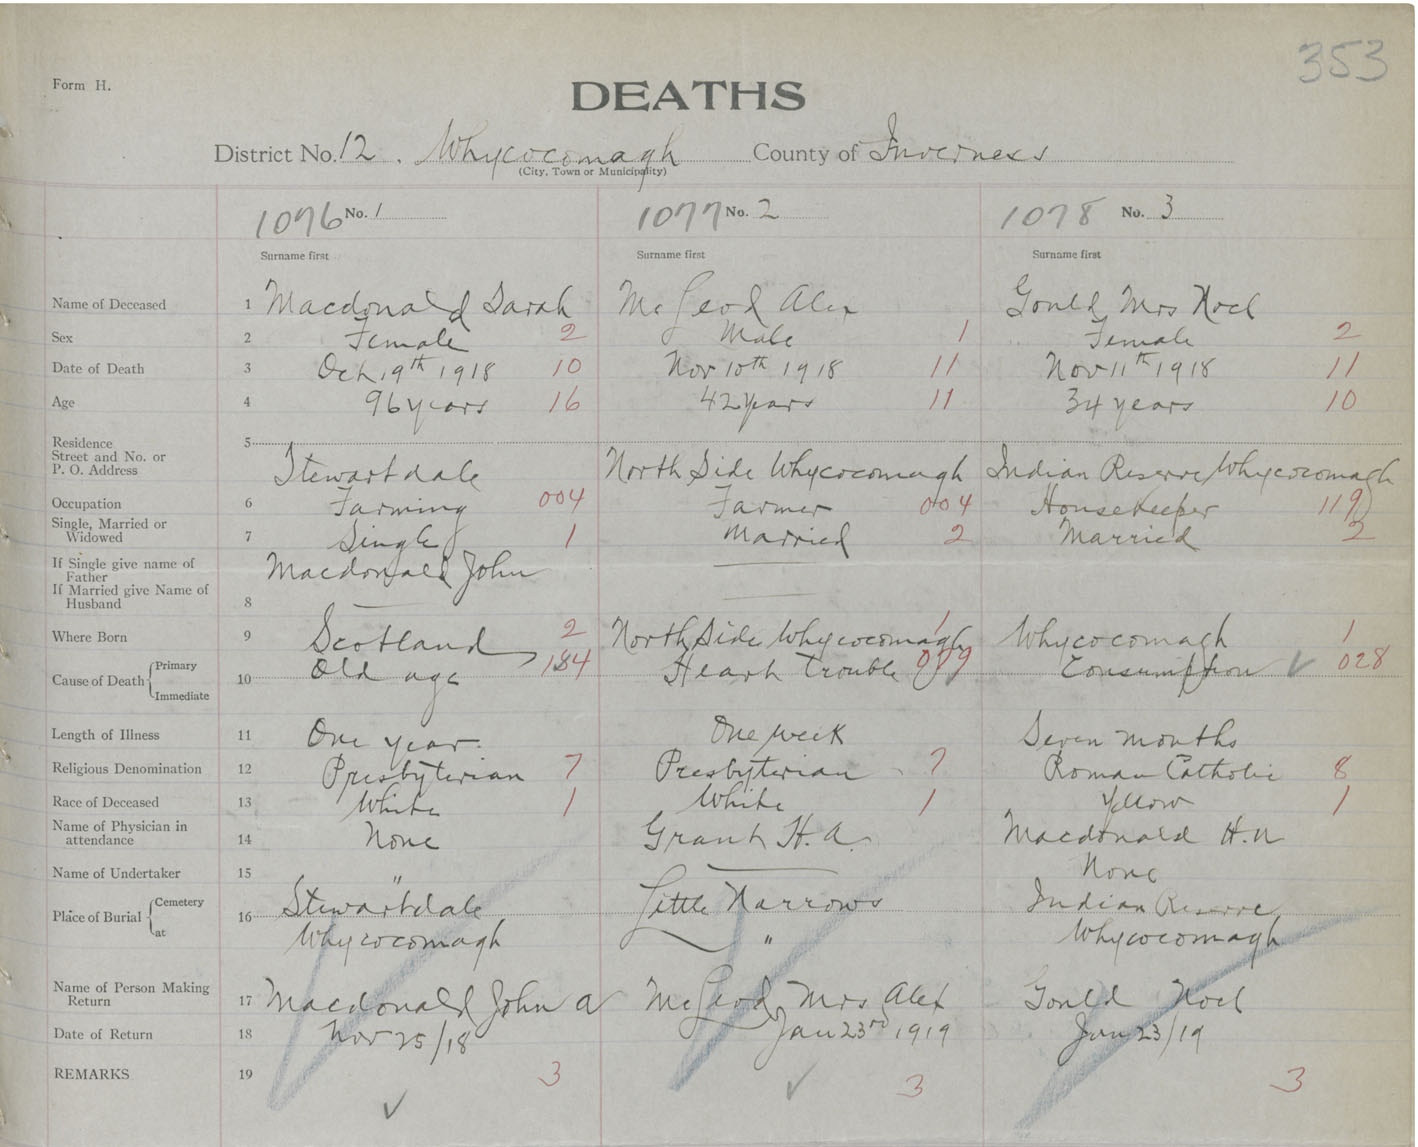 353
Form H.
DEATHS
District No. 12. Whycocomagh County of Inverness
(City, Town or Municipality)
1076 No. 1 1077 No. 2 1078 No. 3
Surname first Surname first Surname first
Name of Deceased 1 Macdonald Sarah McLeod Alex Gould Mrs Noel
Sex 2 Female 2 Male 1 Female 2
Date of Death 3 Oct 19th 1918 10 Nov 10th 1918 11 Nov 11th 1918 11
Age 4 96 years 16 42 years 11 34 years 10
Residence 5
Street and No. or
P. O. Address Stewartdale North Side Whycocomagh Indian Reserve Whycocomagh
Occupation 6 Farming 004 Farmer 004 Housekeeper 119
Single, Married or
Widowed 7 Single 1 Married 2 Married 2
If Single give name of
Father Macdonald John
If Married give Name of
Husband 8
Where Born 9 Scotland 2 North Side Whycocomagh 1 Whycocomagh 1
Cause of Death Primary 10 Old age Heart Trouble Consumption ✓ 028
Immediate
Length of Illness 11 One year. One week Seven months
Religious Denomination 12 Presbyterian 7 Presbyterian 7 Roman Catholic 8
Race of Deceased 13 White 1 White 1 Yellow 1
Name of Physician in
attendance 14 None Grant H. A. Macdonald H. N
Name of Undertaker 15 " None
Place of Burial Cemetery 16 Stewartdale Little Narrows Indian Reserve
at Whycocomagh " Whycocomagh
Name of Person Making
Return 17 Macdonald John A McLeod Mrs Alex Gould Noel
Date of Return 18 Nov 25/18 Jan 23rd 1919 Jan 23/19
REMARKS 19 3 3 3
✓ ✓